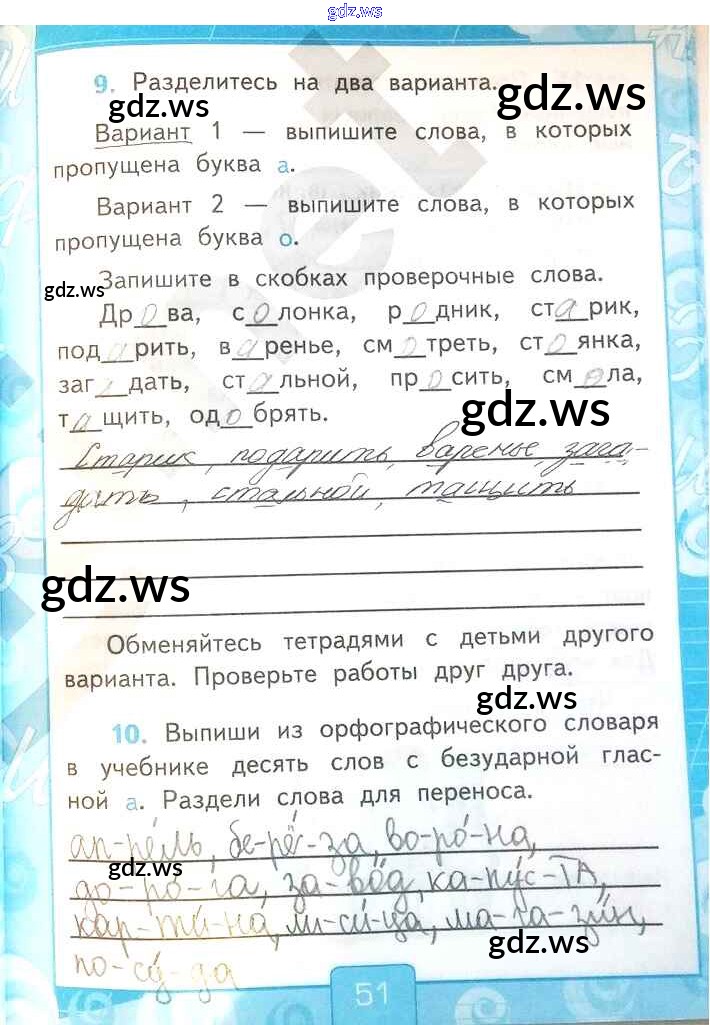 gdz.ws
9. Разделитесь на два варианта.
gdz.ws
gdz.ws
Вариант 1 — выпишите слова, в которых
пропущена буква а.
Вариант 2 — выпишите слова, в которых
пропущена буква о.
Запишите в скобках проверочные слова.
gdz.ws
Др_о_ва, с_о_лонка, р_о_дник, ст_а_рик,
под_а_рить, в_а_ренье, см_о_треть, ст_о_янка,
заг_а_дать, ст_а_льной, пр_о_сить, см_о_ла,
т_а_щить, од_о_брять.
gdz.ws
Старик, подарить, варенье, зага-
дать, стальной, тащить
gdz.ws
Обменяйтесь тетрадями с детьми другого
варианта. Проверьте работы друг друга.
gdz.ws
10. Выпиши из орфографического словаря
в учебнике десять слов с безударной глас-
ной а. Раздели слова для переноса.
ап-ре́ль, бе-рё́с-за, во-ро́-на,
gdz.ws
до-ро́-га, за-во́д, ка-пу́с-та,
кар-ти́-на, ли-си́-ца, ма-га-зи́н,
gdz.ws
по-су́-да
51